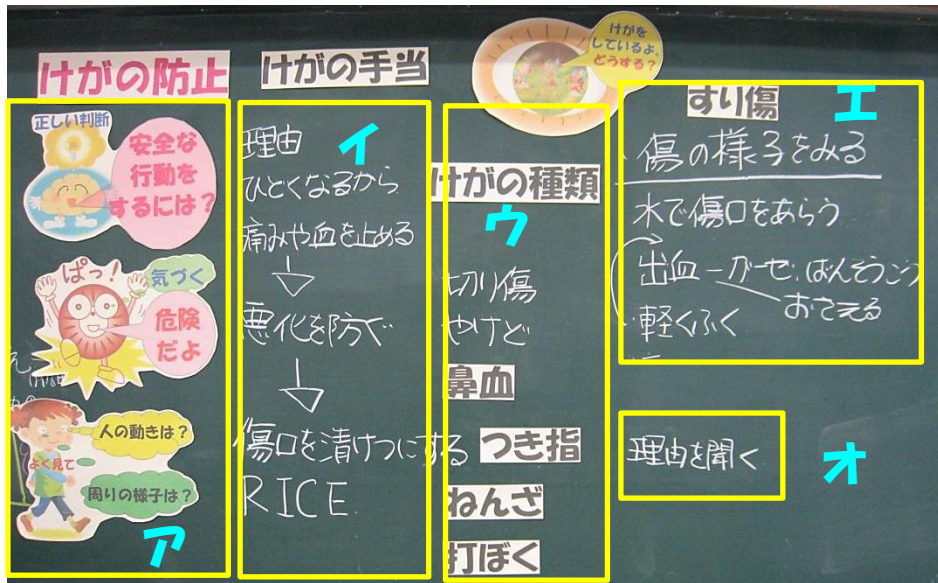 けがの防止
正しい判断
安全な
行動を
するには?
ぱっ!
気づく
危険
だよ
人の動きは?
よく見て
周りの様子は?
ア
けがの手当
イ
理由
ひどくなるから
痛みや血を止める
悪化を防ぐ
傷口を清けつにする
RICE
けがを
しているよ。
どうする?
けがの種類
ウ
切り傷
やけど
鼻血
つき指
ねんざ
打ぼく
すり傷
エ
傷の様子をみる
水で傷口をあらう
出血ーガーゼ、ばんそうこう
おさえる
軽くふく
理由を聞く
オ